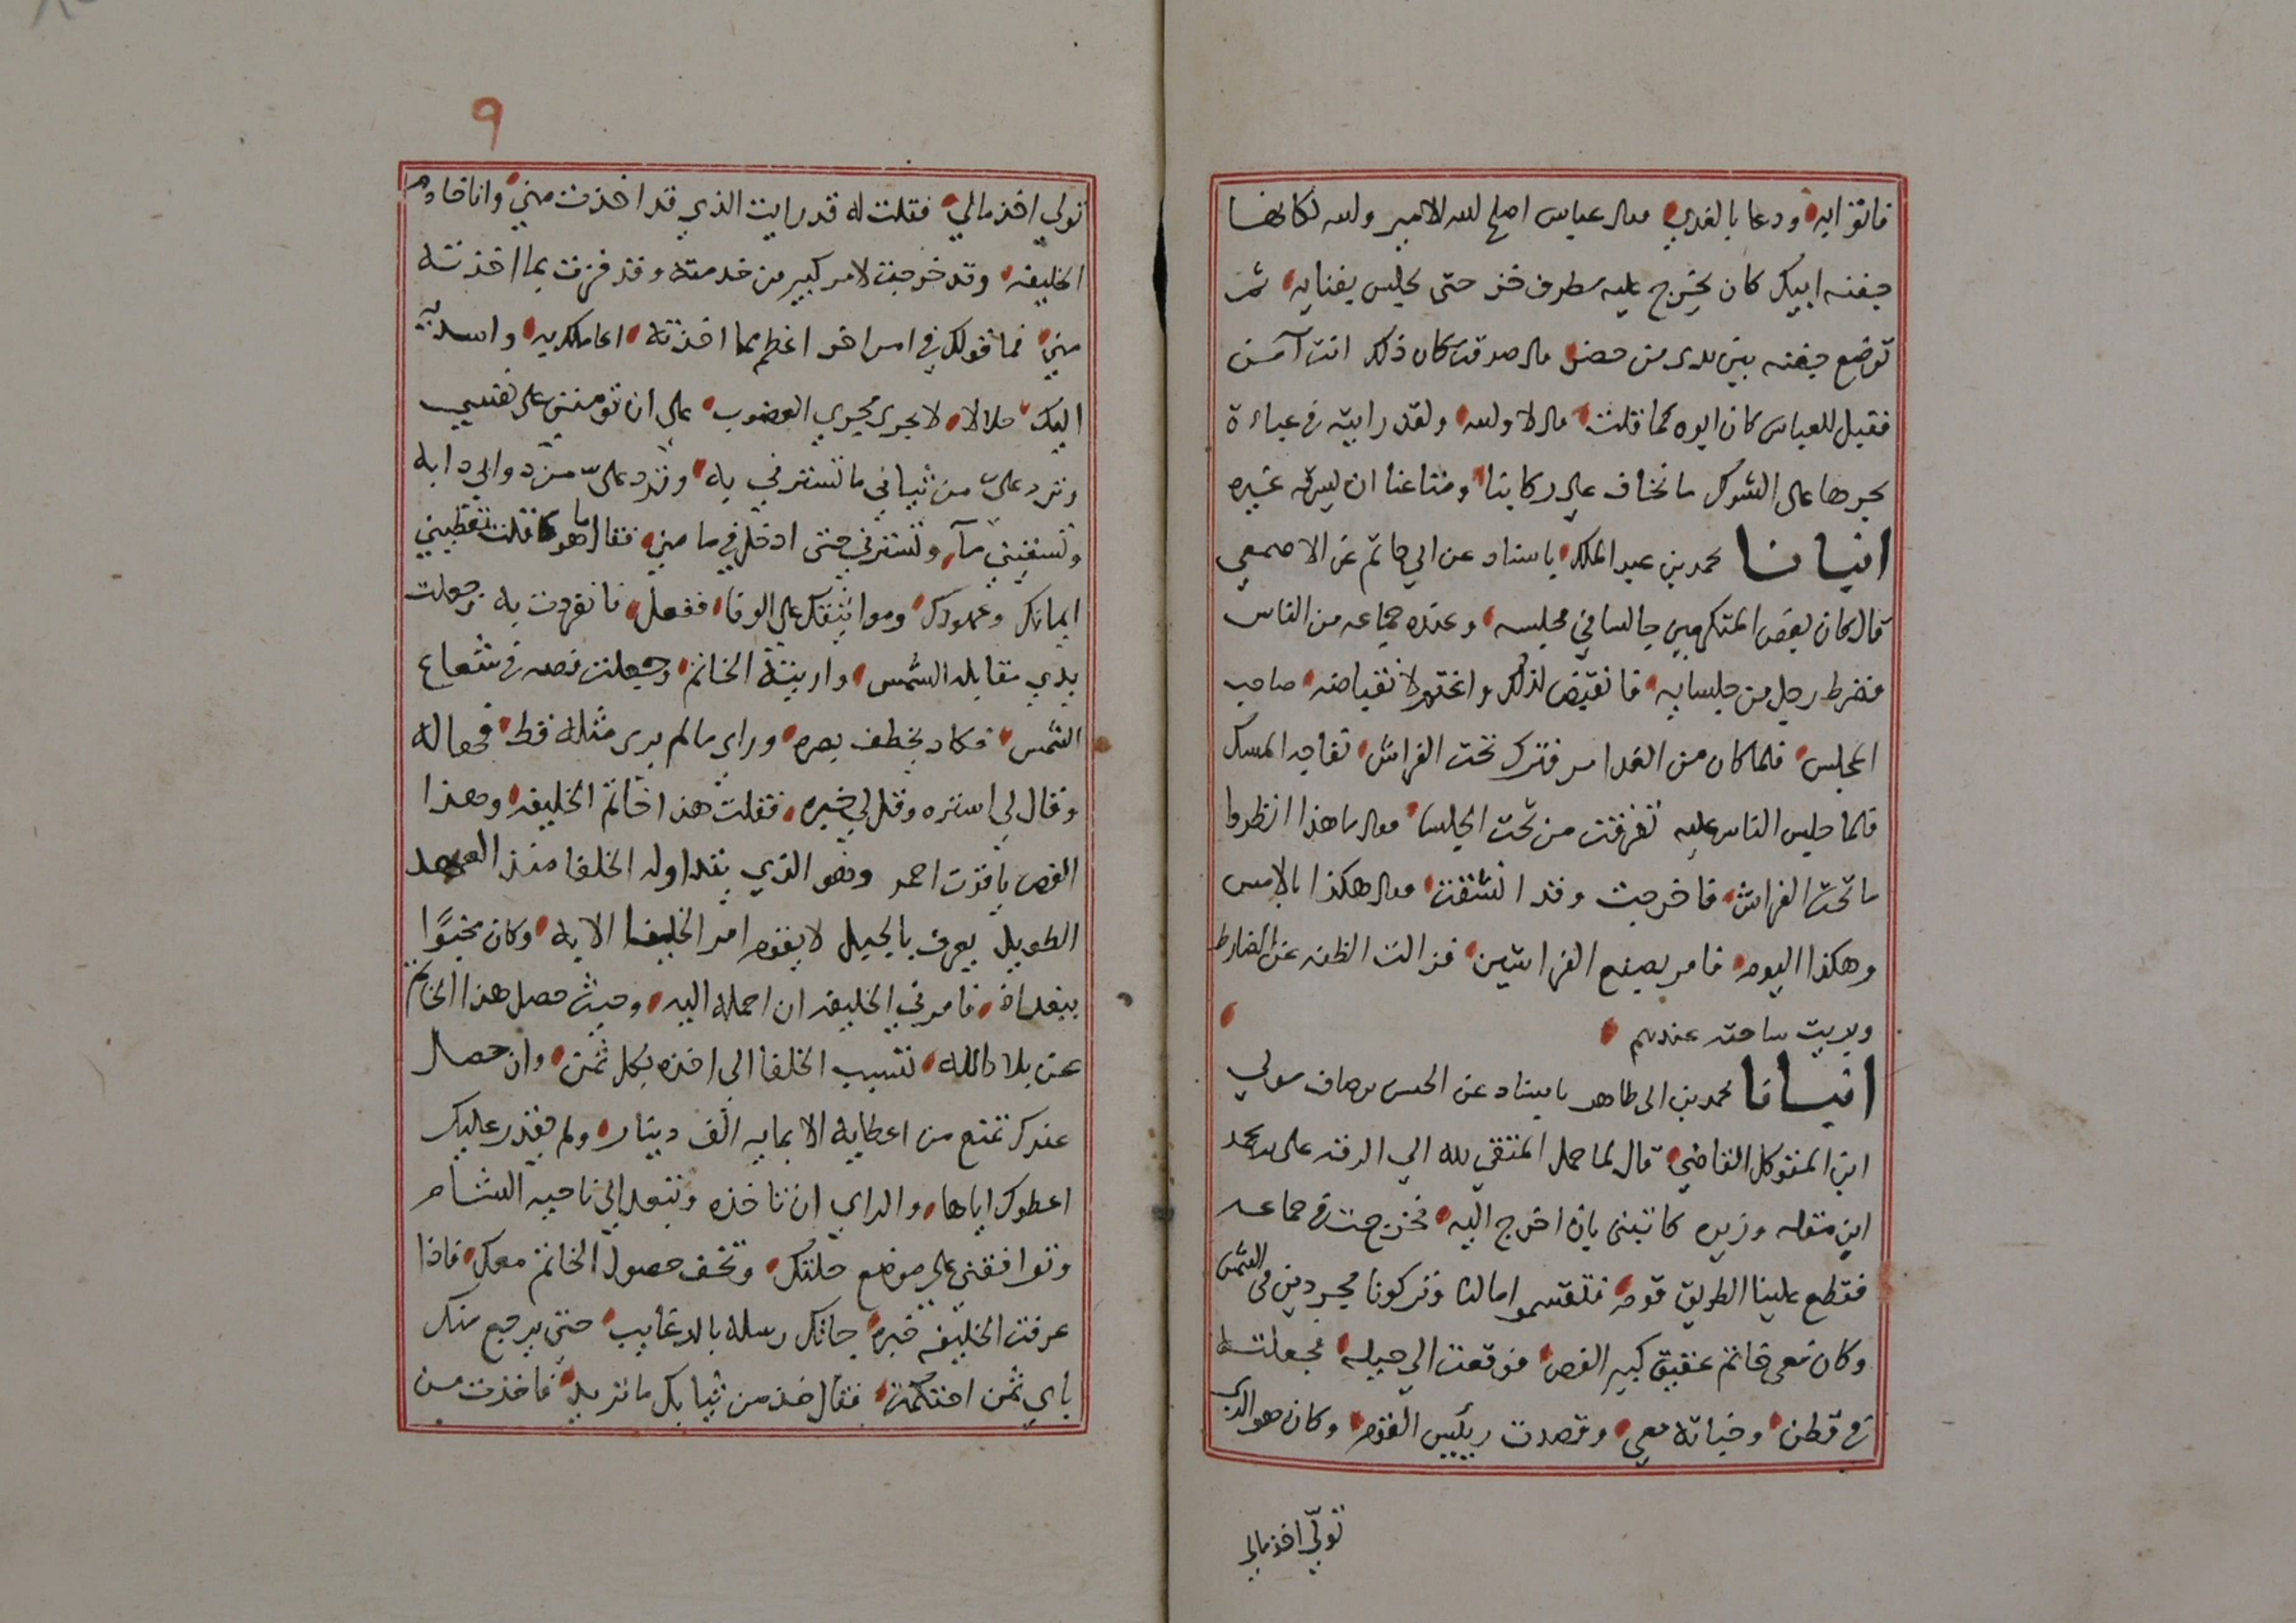 فاتوا به ودعا بالغدي وقال عباس اصلح الله الامير والله لكانها
جفنه ابيك كان يخرج عليه مطرف خز حتى يجلس بفنايه ثم
توضع جفنه بين يدي من حضر قال صدقت كان ذلك انت آمن
فقيل للعباس كان ابوه كما قلت قال لا والله ولقد رايته في عباءة
يجرها على الشوك ما نخاف على ركابنا ومتاعنا ان يسرقه غيره
انبانا محمد بن عبد الملك باسناد عن ابي حاتم عن الاصمعي
قال كان بعض المتكرمين جالسا في مجلسه وعنده جماعه من الناس
فضرط رجل من جلسايه فانقبض لذلك واغتم لانقباضه صاحب
المجلس فلما كان من الغد امر فترك تحت الفراش نفاجه المسك
فلما جلس الناس عليه تفرقت من تحت الجلسا فقال ما هذا انظروا
ما تحت الفراش فاخرجت وقد انشقت فقال هكذا بالامس
وهكذا اليوم فامر بصفع الفراشين فزالت الظنه عن الضارط
وبريت ساحته عندهم
انبانا محمد بن ابي طاهر باسناد عن الحسن مولي
ابن المتوكل القاضي قال لما حمل المتقي لله الي الرقه على يد محمد
ابن مقله وزيره كاتبني بان اخرج اليه فخرجت في جماعه
فقطع علينا الطريق قوم فتقسموا مالنا وتركونا مجردين في الشمس
وكان معي خاتم عقيق كبير الفص فوقعت الي حيله فجعلته
في قطن وخباته معي وقصدت رييس القوم وكان هو الذي
تولّي اخذ مالي
٩
تولي اخذ مالي فقلت له قد رايت الذي قد اخذت مني وانا خادم
الخليفه وقد خرجت لامر كبير من خدمته وقد فزت بما اخذته
مني فما قولك في امر اخر اعظم مما اخذته اعاملك به واسديه
اليك حلالا لا يجري مجري الغصوب على ان تومنني على نفسي
وترد علىّ من ثيابي ما تسترني به وترد علىّ من دوابي دابه
وتسقيني مآ وتسترني حتى ادخل في مامني فقال ما هو قلت تعطيني
ايمانك وعهودك ومواثيقك على الوفا ففعل فانفردت به وجعلت
يدي مقابله الشمس واريته الخاتم وجعلت فصه في شعاع
الشمس فكاد يخطف بصره وراي ما لم يري مثله قط فهاله
وقال لي استره وقل لي خبره فقلت هذا خاتم الخليفه وهذا
الفص ياقوت احمر وهو الذي يتداوله الخلفا منذ العهد
الطويل يعرف بالجبل لا يقوم امر الخليفه الا به وكان مخبوًا
ببغداذ فامرني الخليفه ان احمله اليه وحيث حصل هذا الخاتم
عن بلاد الله تسبب الخلفا الي اخذه بكل ثمن وان حصل
عندك تمتع من اعطايه الا بمايه الف دينار ولم يقدر عليك
اعطوك اياها والراي ان تاخذه وتبعد الي ناحيه الشام
وتوافقني على موضع حلتك وتخف حصول الخاتم معك فاذا
عرفت الخليفه خبره جاتك رسله بالرغايب حتى يرجع منك
باي ثمن احتكمته فقال خذ من ثيابك ما تريد فاخذت من